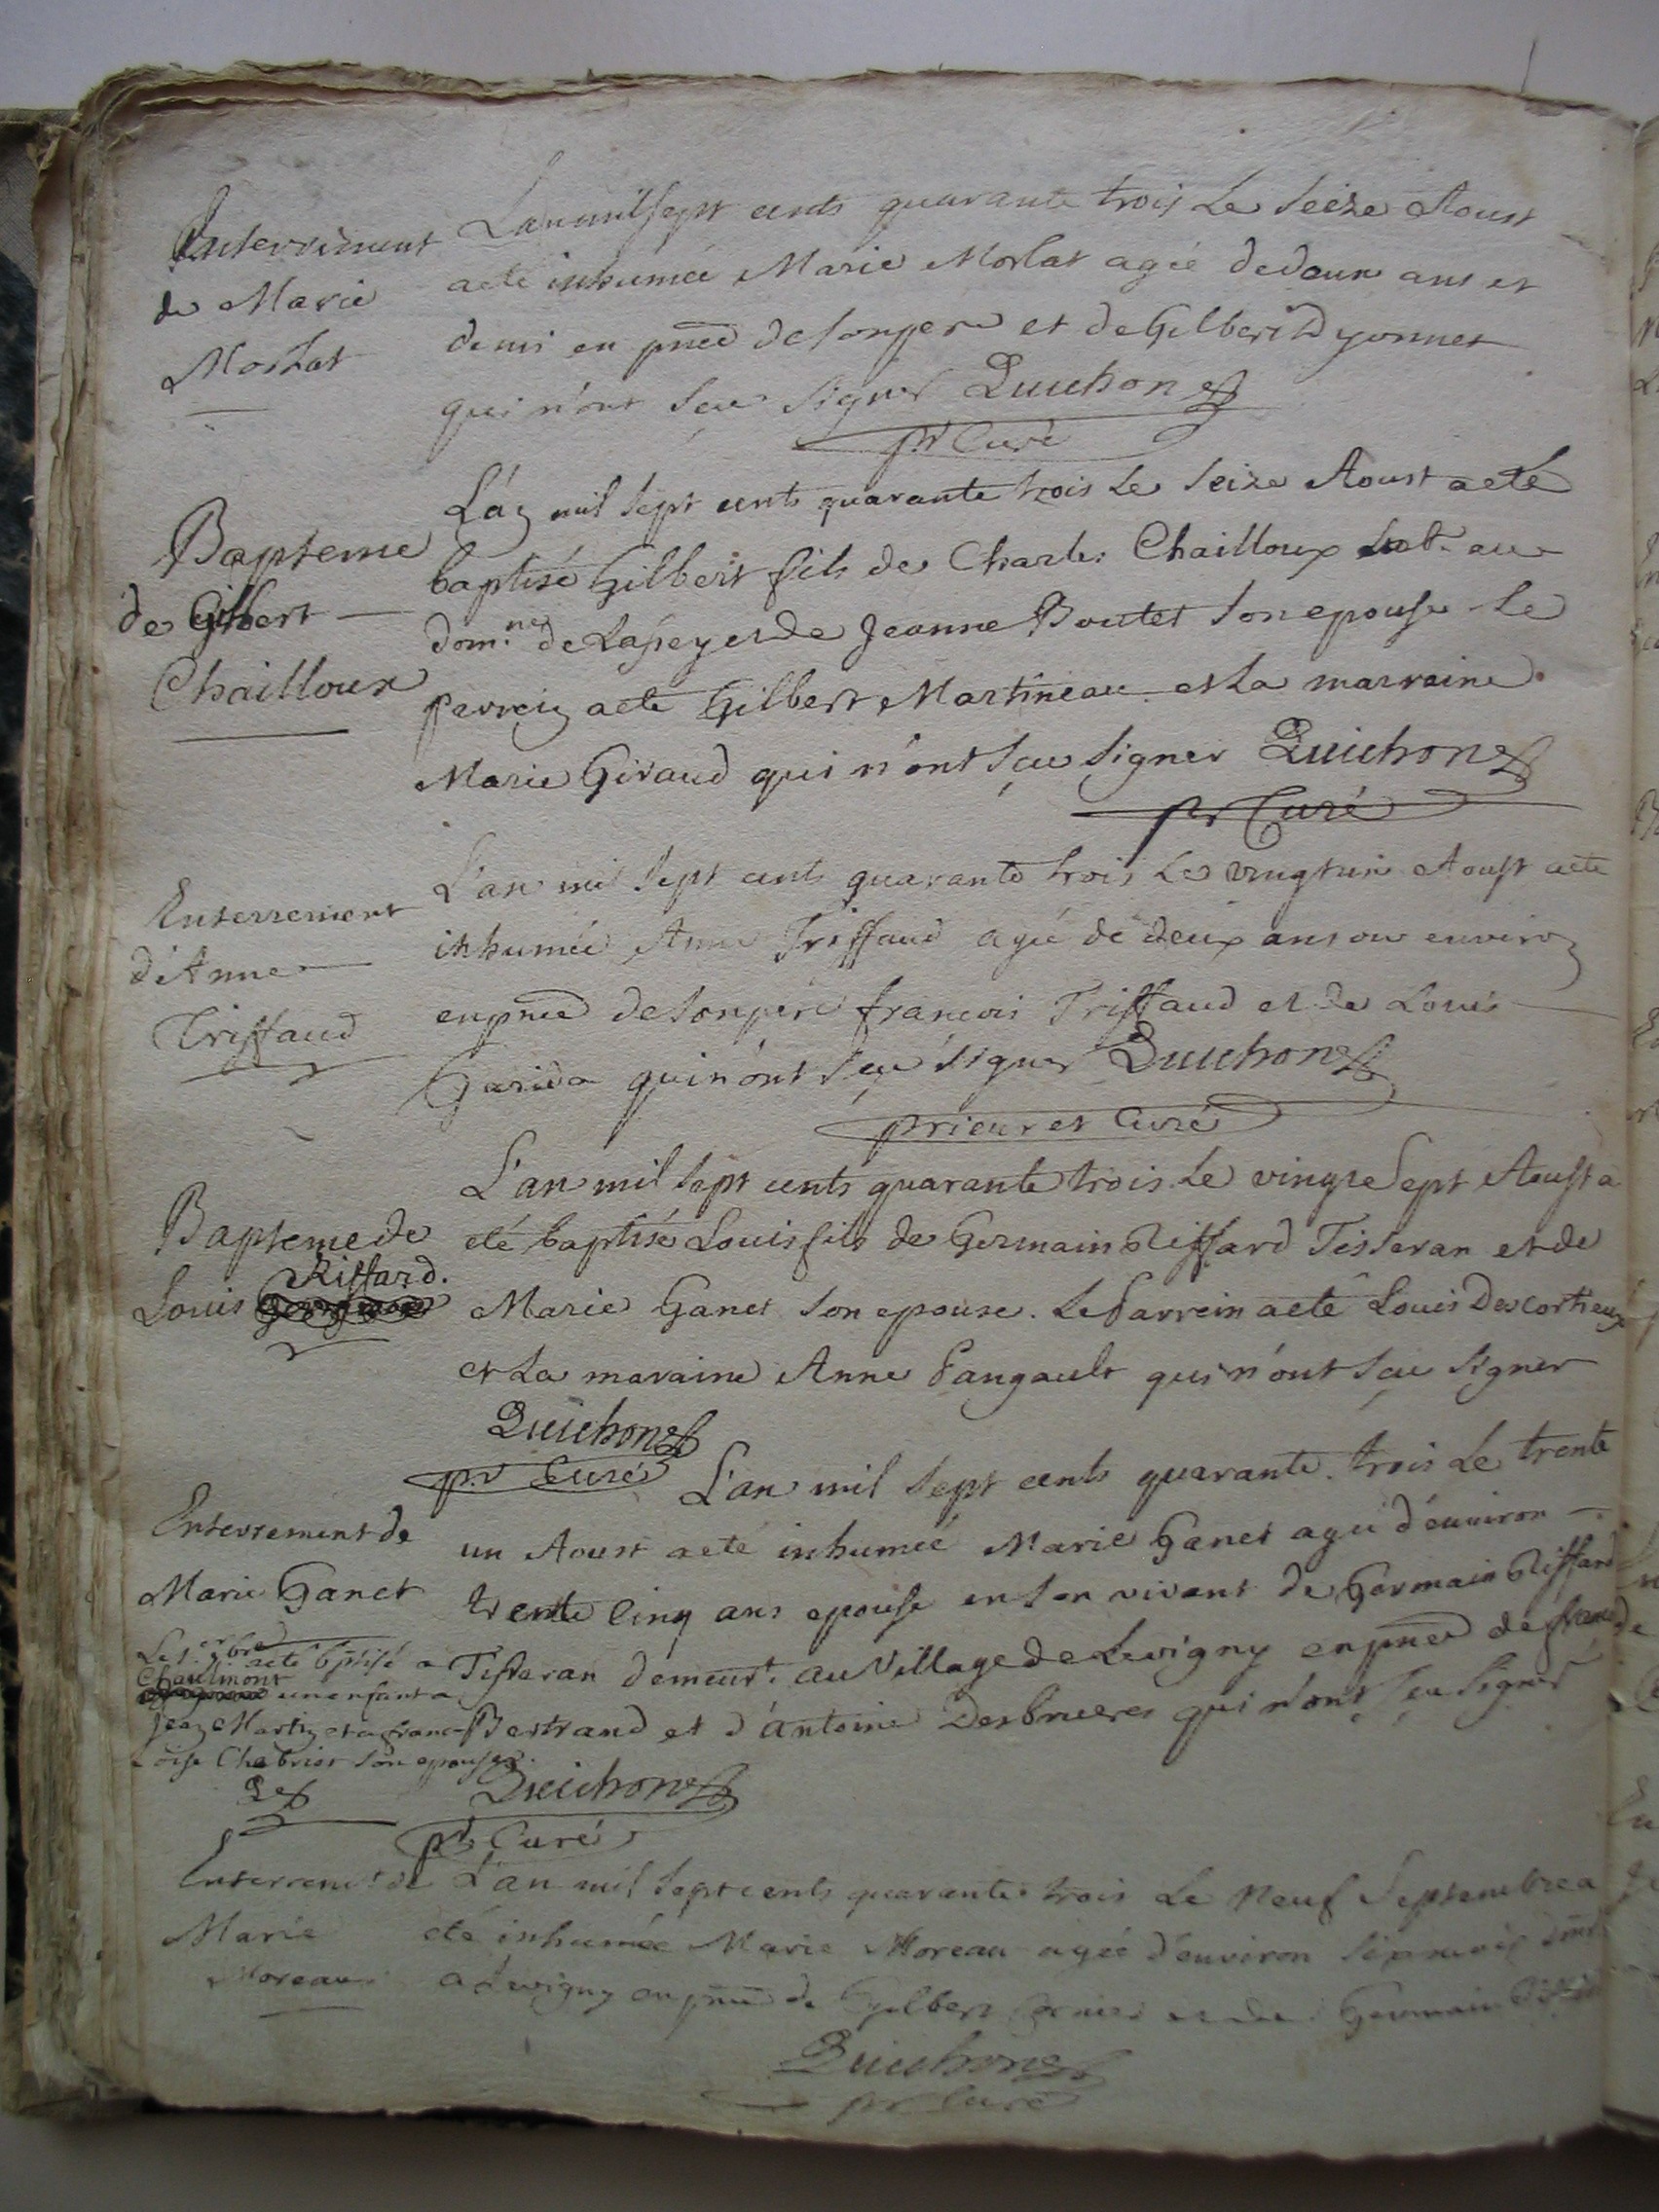 Enterrement
de Marie
Morlat
L'an mil sept cents quarante trois Le seize Aoust
a eté inhumée Marie Morlat agée de deux ans et
demi en pnce de son pere et de Gilbert Dyonnet
qui n'ont sçu signer Quichon
pr Curé
Bapteme
de Gilbert
Chailloux
L'an mil sept cents quarante trois Le seize Aoust a eté
baptisé Gilbert fils de Charles Chailloux au
dom.ne de Lassey et de Jeanne Boutet son epouse Le
parrein a eté Gilbert Martineau et La marraine
Marie Giraud qui n'ont sçu signer Quichon
pr Curé
Enterrement
d'Anne
Triffaud
L'an mil sept cents quarante trois Le vingt un Aoust a eté
inhumée Anne Triffaud agée de deux ans ou environ
en pnce de son pere francois Triffaud et de Louis
qui n'ont sçu signer Quichon
prieur et Curé
Bapteme de
Louis Riffard.
L'an mil sept cents quarante trois Le vingt sept Aoust a
eté baptisé Louis fils de Germain Riffard Tisseran et de
Marie Ganet son epouse. Le Parrein a eté Louis Descortieux
et La maraine Anne Pangault qui n'ont sçu signer
Quichon
pr Curé
Enterrement de
Marie Ganet
L'an mil sept cents quarante trois Le trente
un Aoust a eté inhumée Marie Ganet agée d'environ
trente Cinq ans epouse en son vivant de Germain Riffard
Tisseran demeurt. au Village de Levigny en pnce de
Bertrand et d'Antoine Desbrueres qui n'ont sçu signer
Quichon
pr Curé
Le 1.er 7bre a eté bptisé a
Chaulmont un enfant a
Jean Martin et a fran-
coise Chabrier son epouse.
Enterremt. de
Marie
Moreau
L'an mil sept cents quarante trois Le Neuf Septembre a
eté inhumée Marie Moreau agée d'environ six mois
a Levigny en pnce de Gilbert et de Germain
Quichon
pr Curé